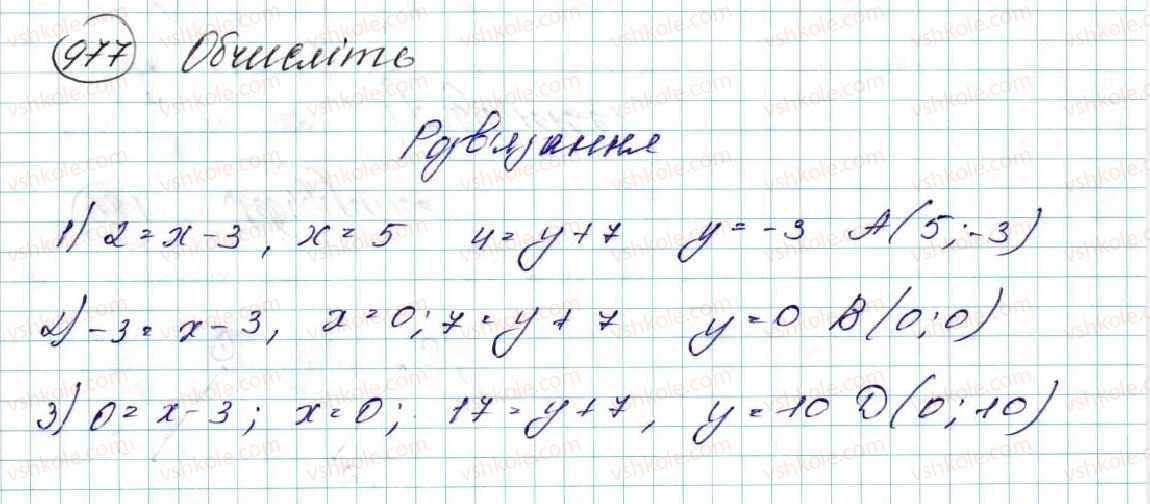 977 Обчисліть
Розв'язання
1) 2 = x - 3, x = 5 4 = y + 7 y = -3 A(5; -3)
2) -3 = x - 3, x = 0; 7 = y + 7 y = 0 B(0; 0)
3) 0 = x - 3; x = 0; 17 = y + 7, y = 10 D(0; 10)